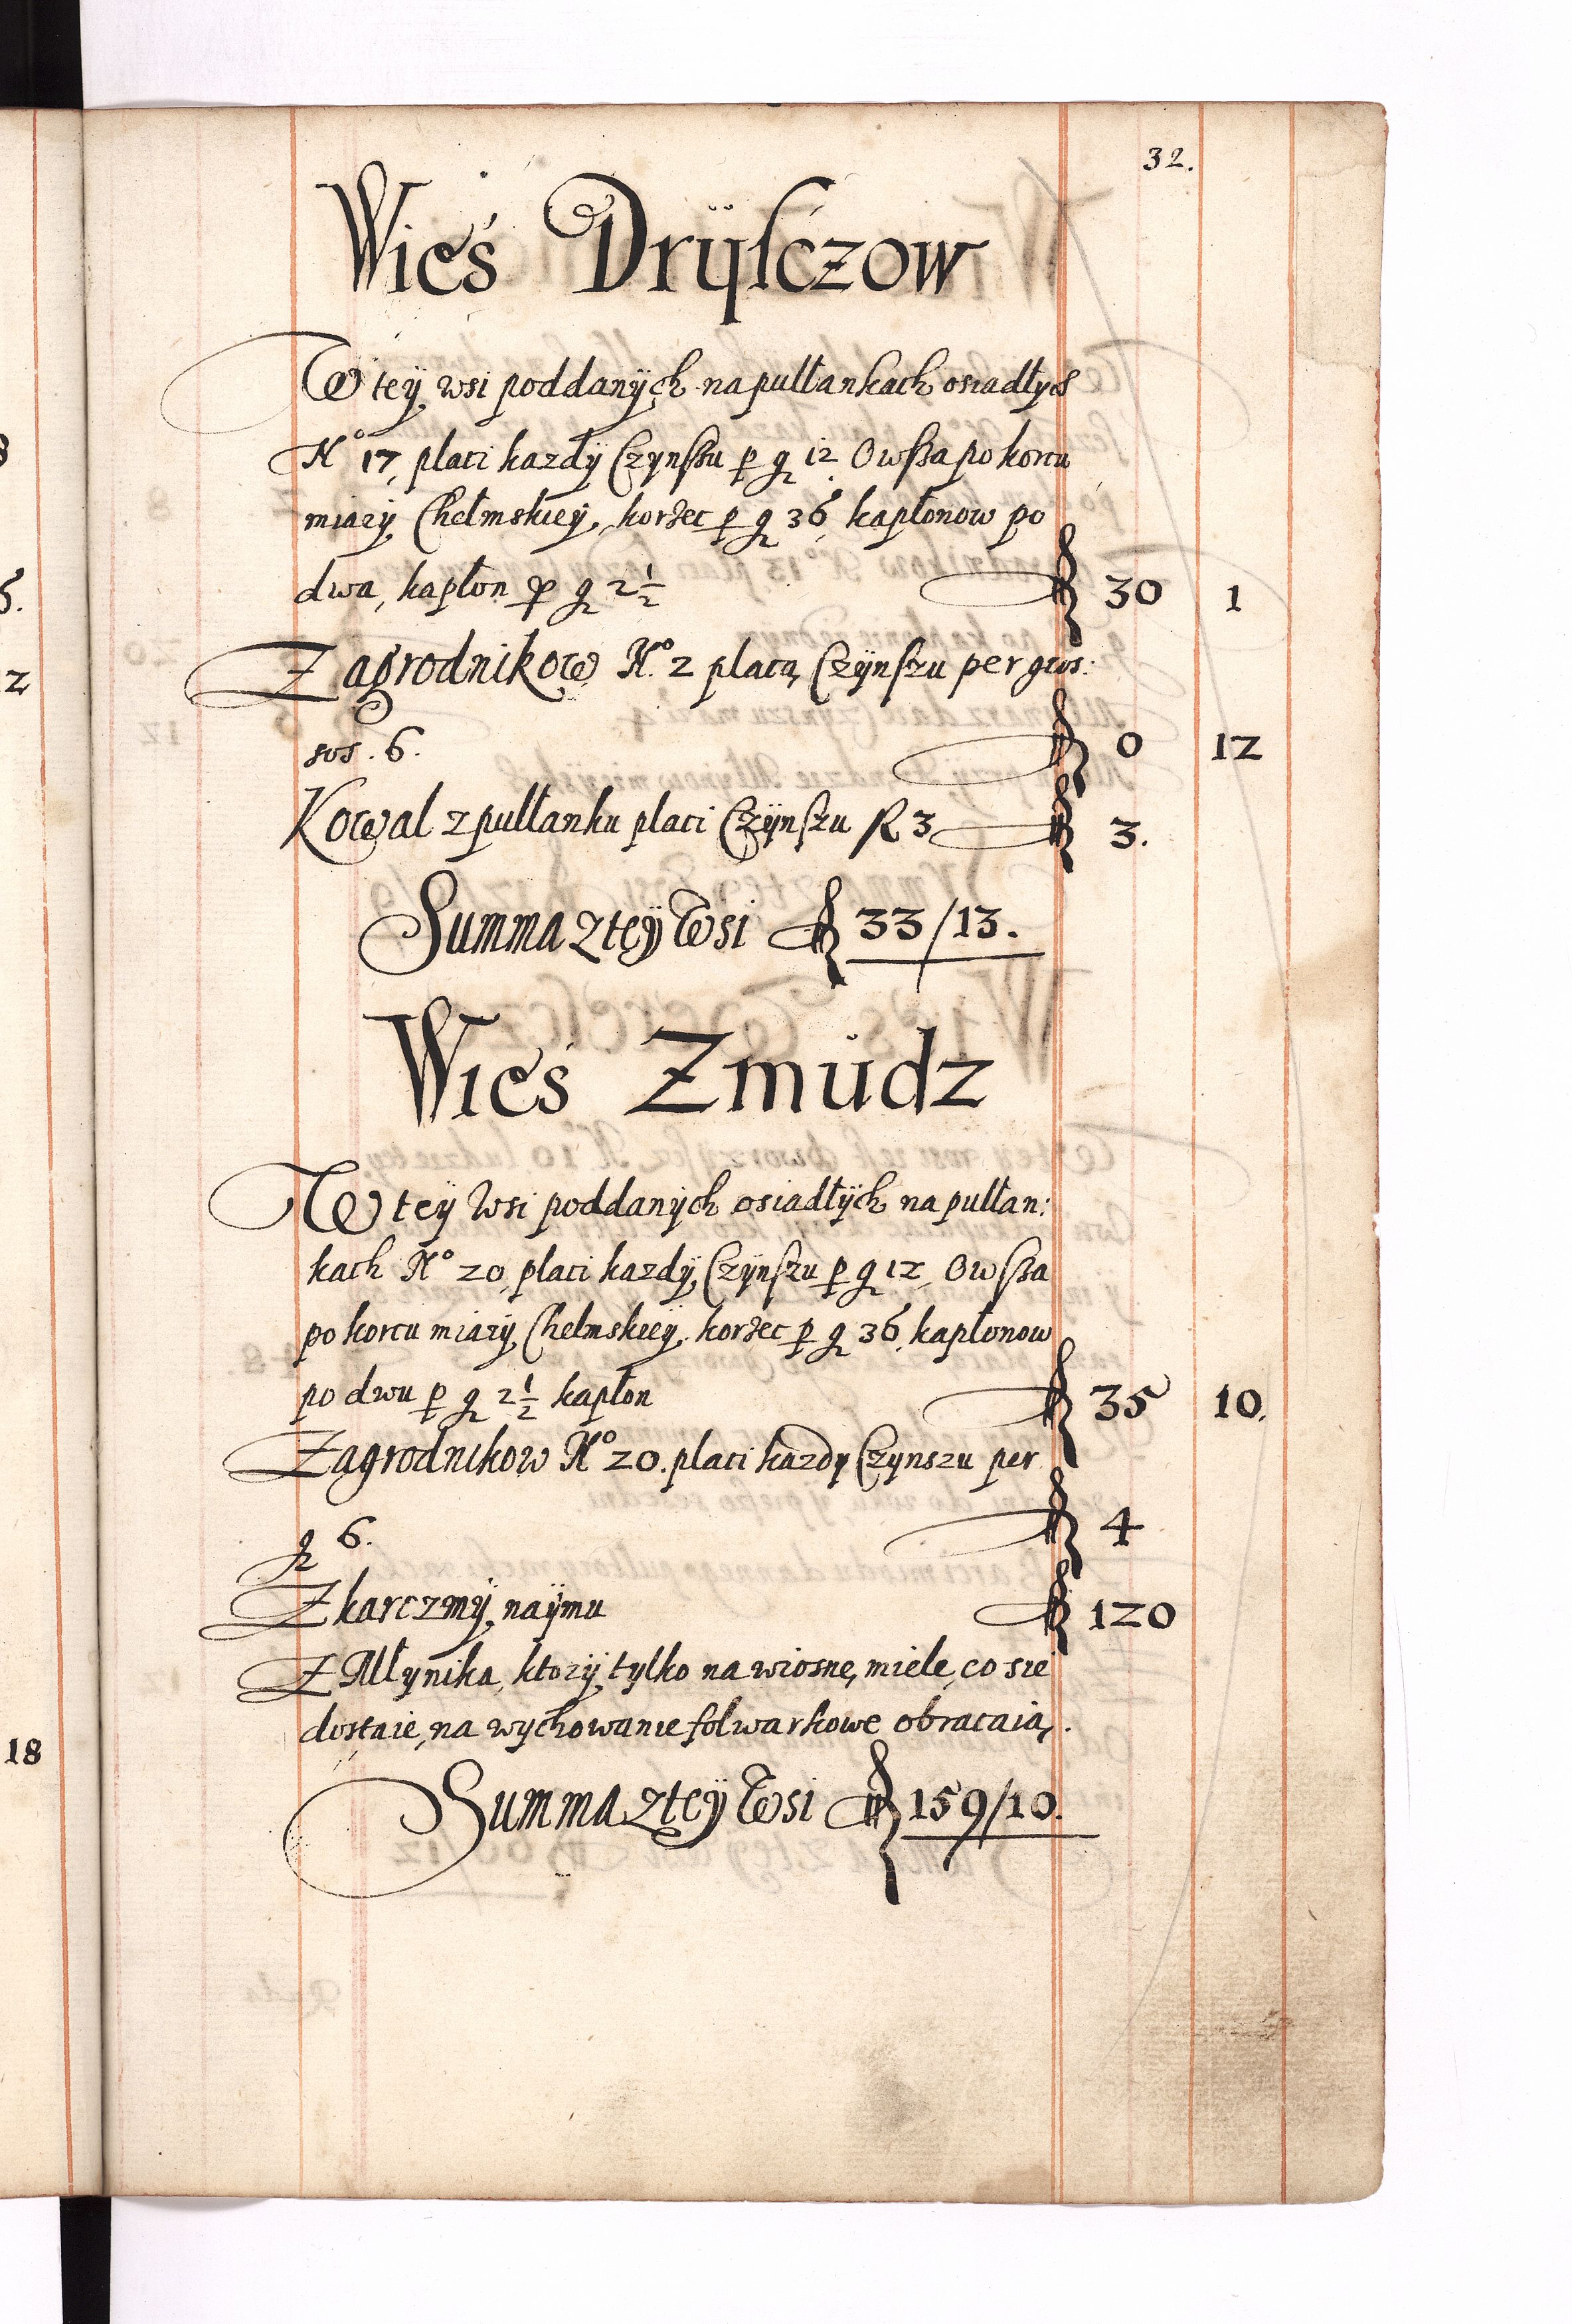 32.
Wieś Drÿsczow
W teÿ wsi poddanÿch na pułłankach osiadłych
N° 17, płaci kazdÿ Czynssu p g 12 Owssa po korcu
miarÿ Chełmskieÿ, korzec p g 36 kapłonow po
dwa, kapłon p g 2 1/2 30 1
Zagrodnikow N° 2 płacą Czÿnszu per gros:
sos. 6. 0 12
Kowal z pułłanku płaci Czÿnszu R 3 3.
Summa z teÿ Wsi 33/13.
Wieś Zmudz
W teÿ Wsi poddanÿch osiadłÿch na pułłan:
kach N° 20 płaci kazdÿ Czÿnszu p g 12, Owssa
po korcu miarÿ Chełmskieÿ korzec p g 36 kapłonow
po dwu p g 2 1/2 kapłon 35 10.
Zagrodnikow N° 20. płaci kazdy Czynszu per
g 6. 4
Z karczmÿ naÿmu 120
Z Młynika, ktorÿ tylko na wiosnę, miele, co się
dostaie, na wychowanie folwarkowe obracaią,.
Summa z teÿ Wsi 159/10.
18